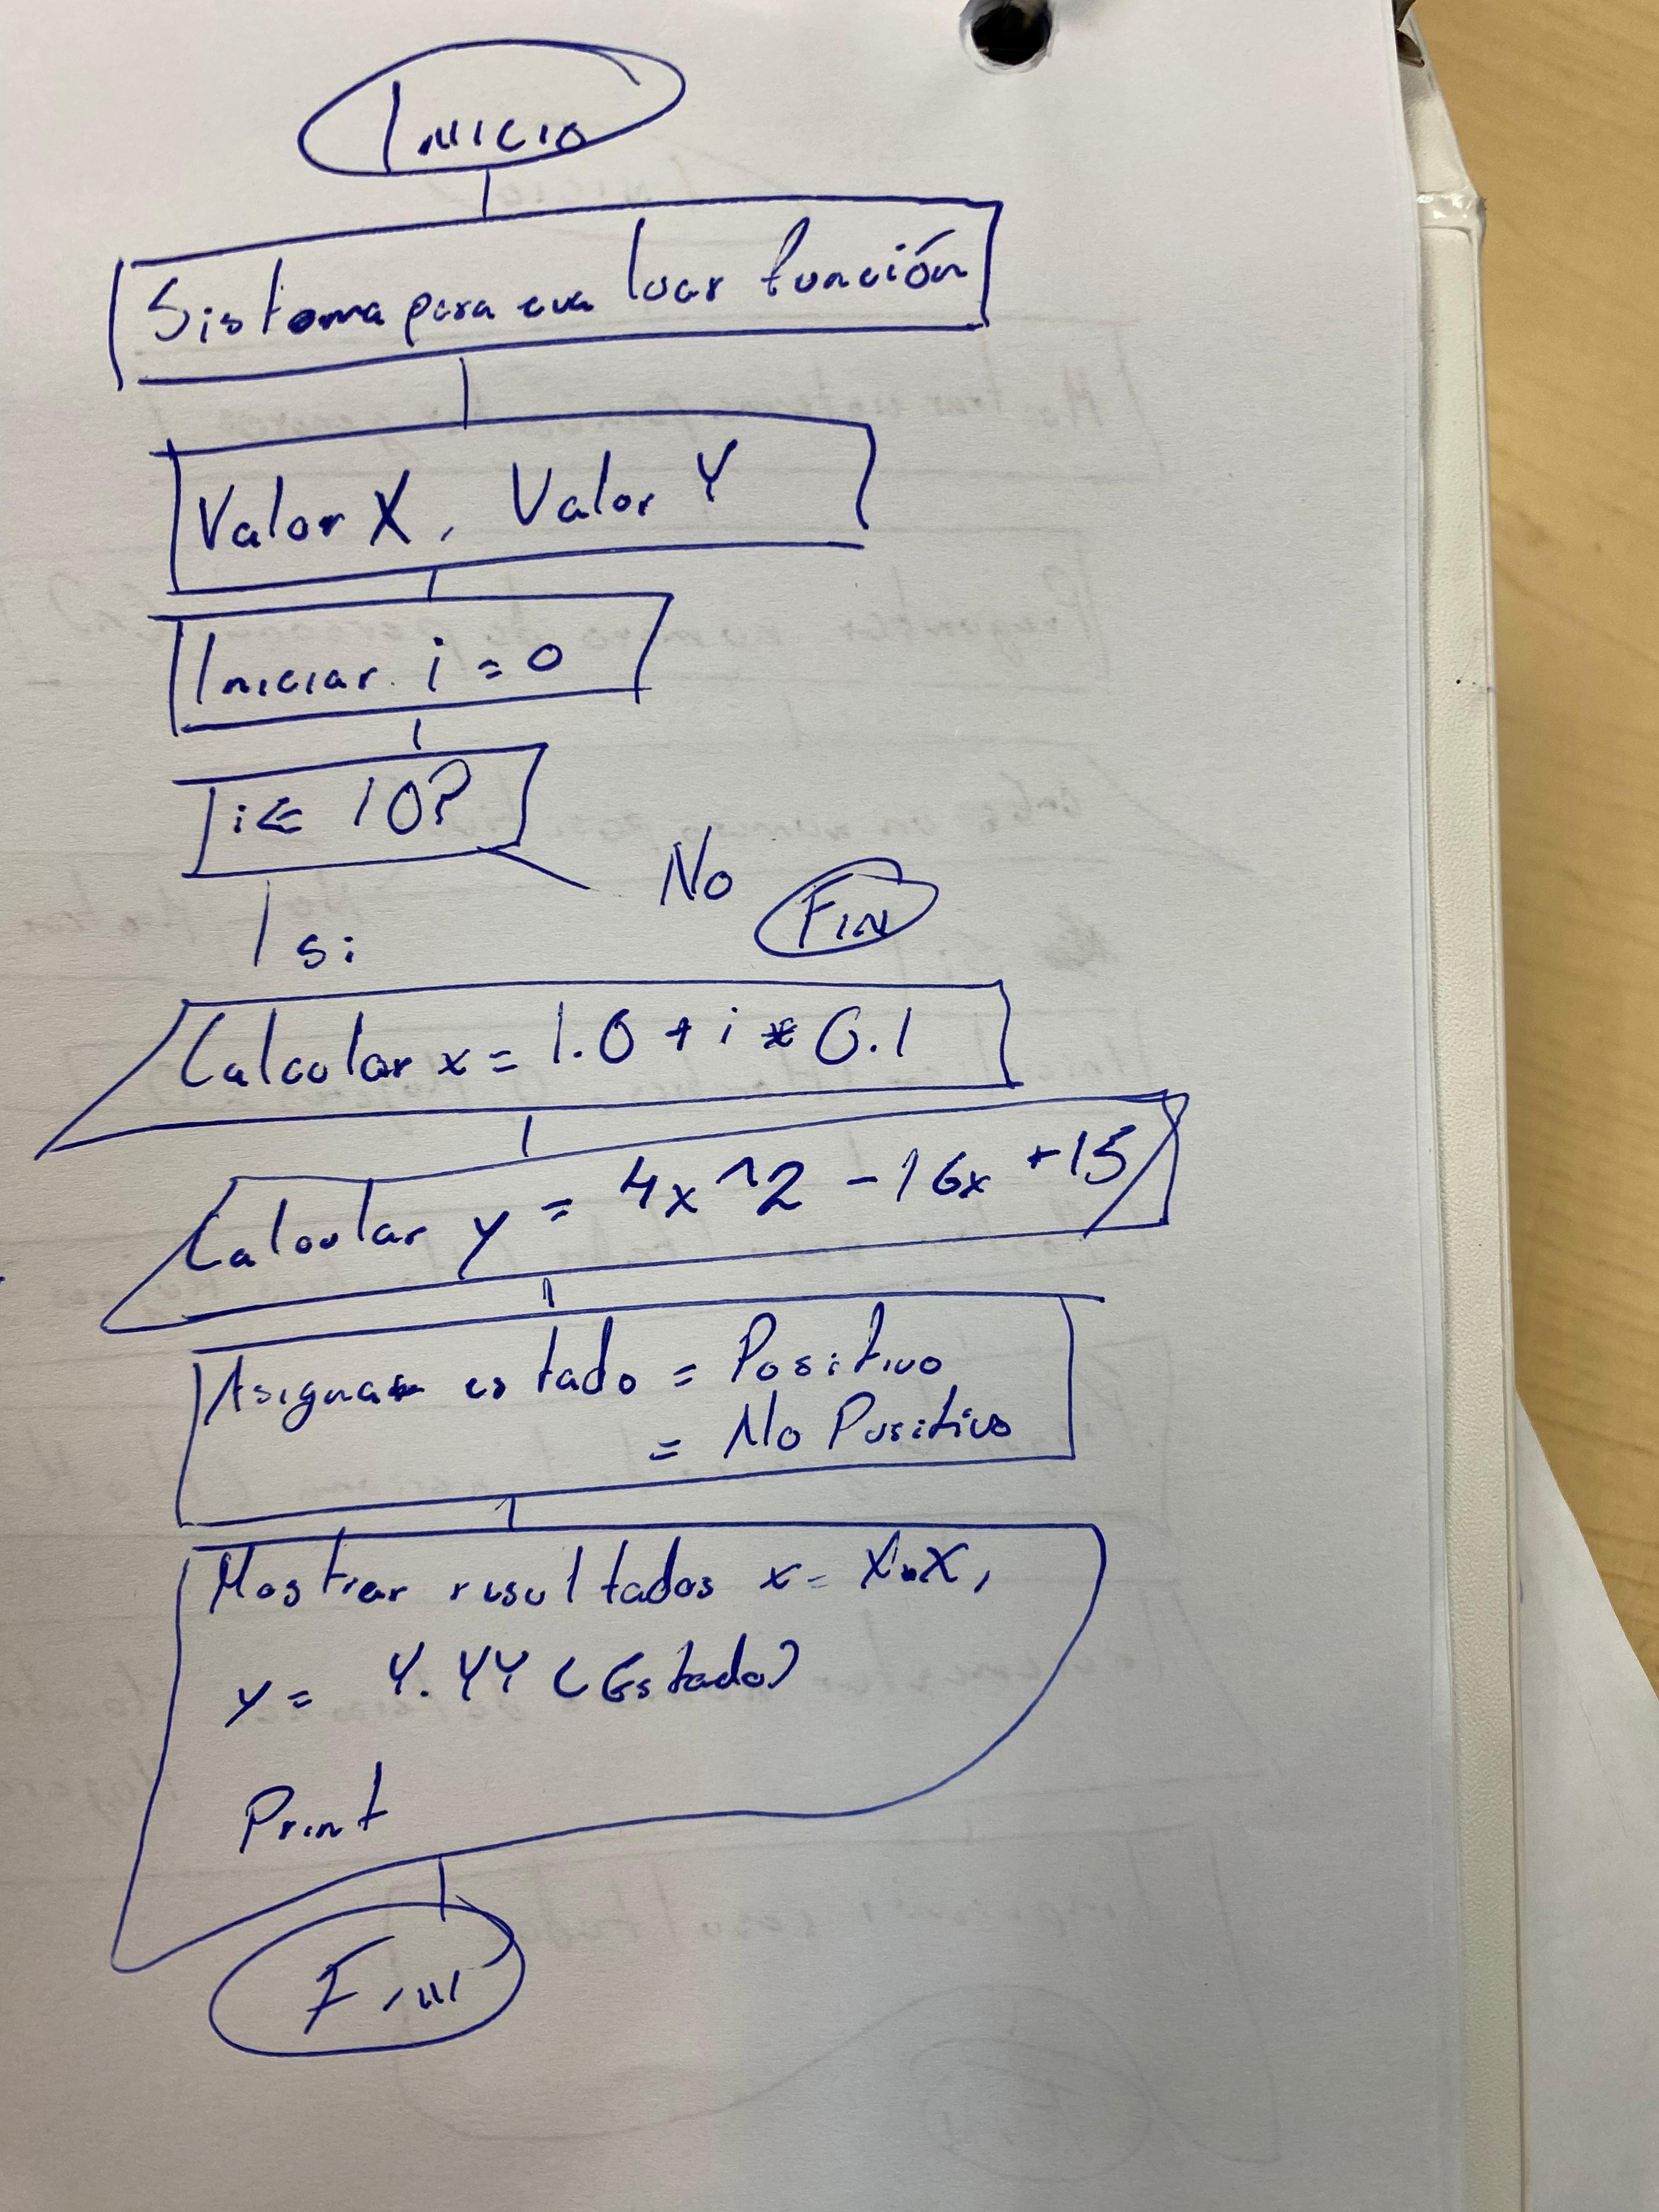 Inicio
Sistema para evaluar función
Valor X, Valor Y
Iniciar i = 0
i ≤ 10?
No
Fin
Si
Calcular x = 1.0 + i * 0.1
Calcular y = 4x^2 - 16x + 15
Asignar estado = Positivo
= No Positivo
Mostrar resultados x = X.X,
y = Y.YY (Estado)
Print
Fin